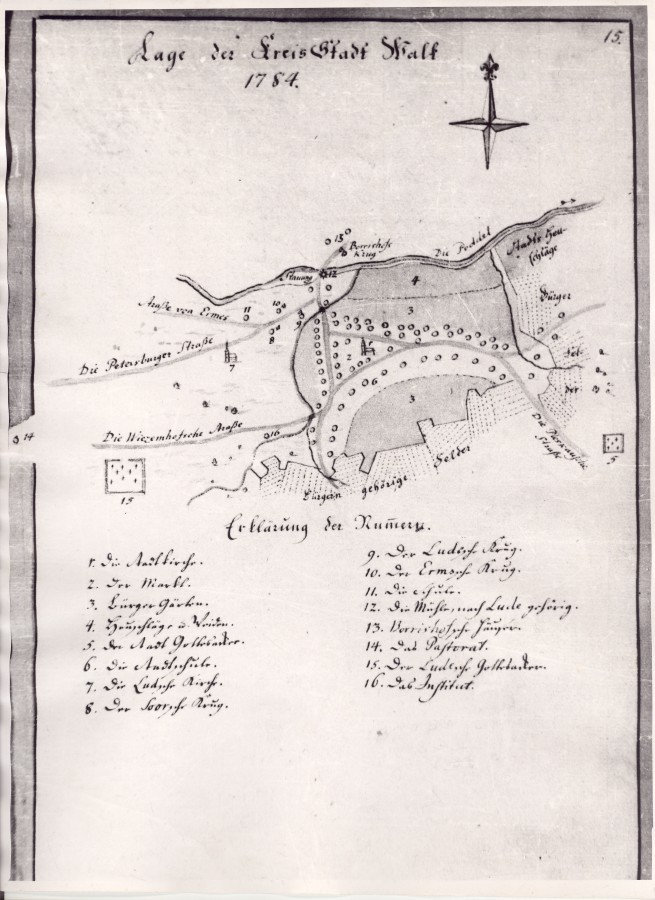 15.
Lage der Kreis Stadt Walk
1784.
13
Borrishofs
Krug
Die Peddel
Stadts Heu-
schläge
Stauung
12
4
Straße von Ermes
11
10
9
8
3
Bürger
Die Petersburger Straße
7
1
2
Fel-
der
6
3
Die Wiezemhofsche Straße
16
14
15
Die Dorpatsche
Straße
5
Bürgern gehörige Felder
Erklärung der Num̅ern.
1. Die Stadtkirche.
2. Der Markt.
3. Bürger Gärten.
4. Heuschläge u. Weiden.
5. Der Stadt Gottesacker.
6. Die Stadtschule.
7. Die Ludsche Kirche.
8. Der Krug.
9. Der Ludsche Krug.
10. Der Ermssche Krug.
11. Die Schule.
12. Die Mühle, nach Lude gehörig.
13. Borrishofsche Häuser.
14. Das Pastorat.
15. Der Ludesche Gottesacker.
16. Das Institut.